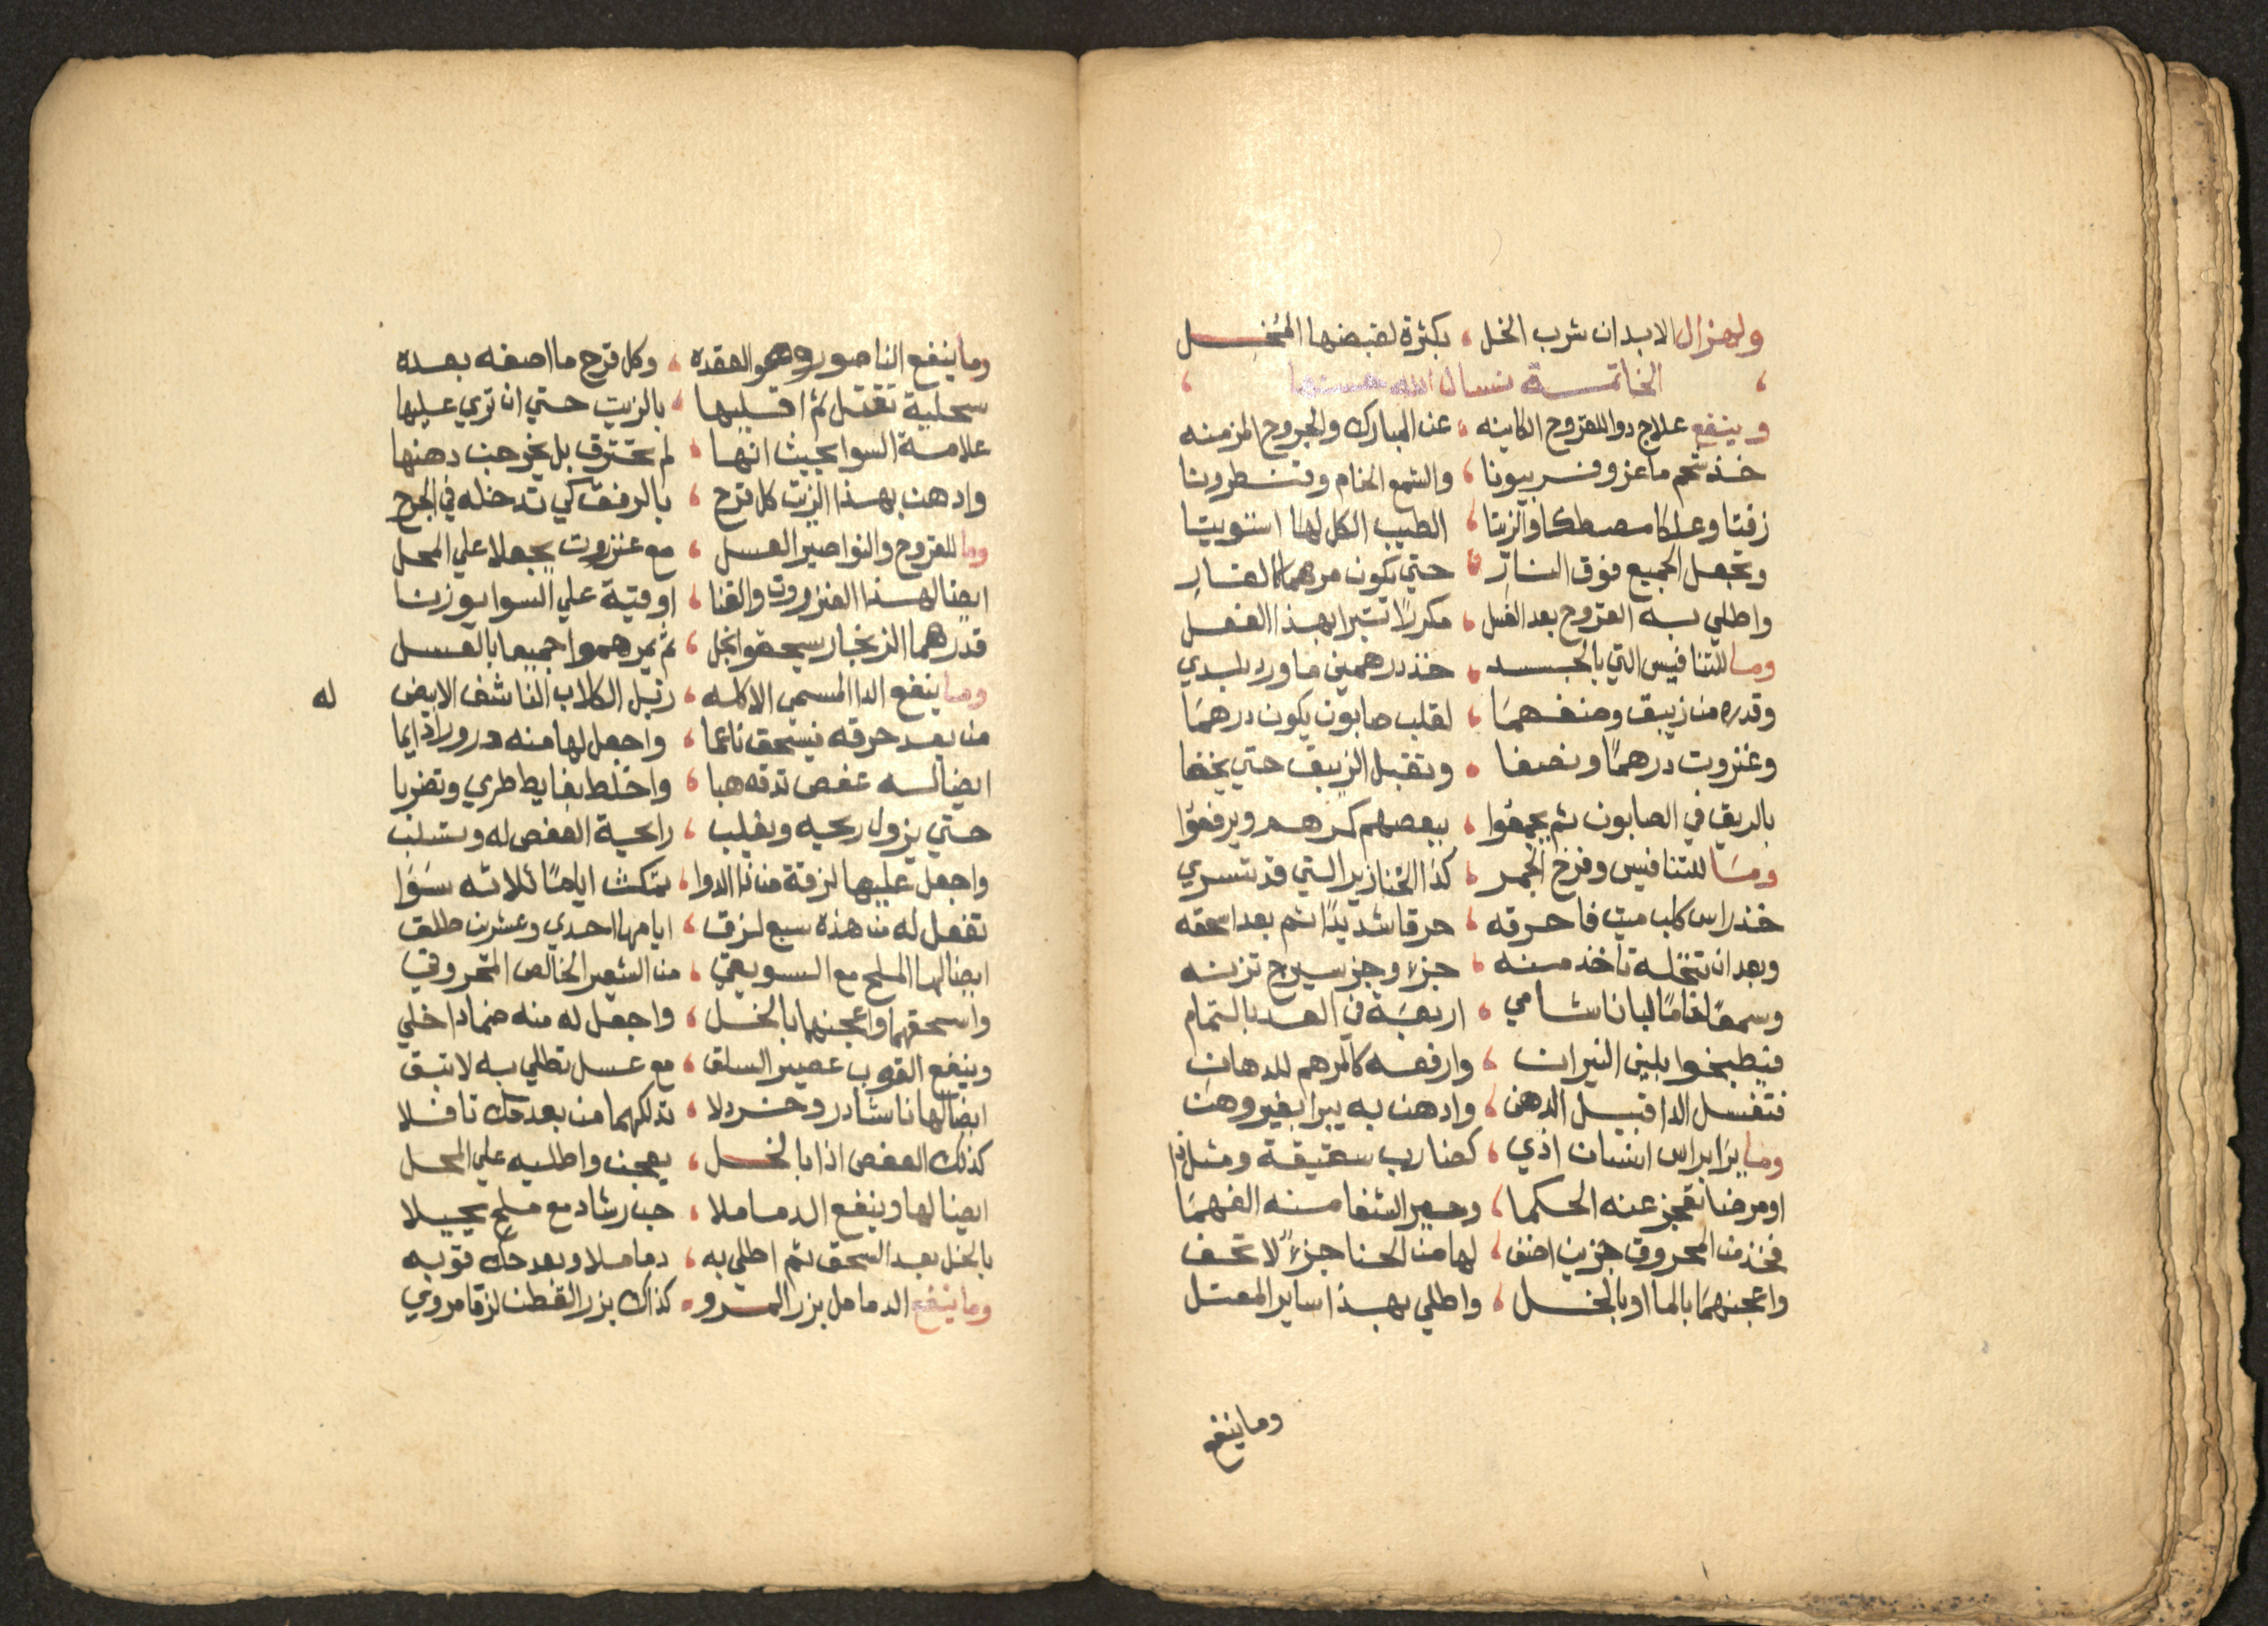 ولهزال الابدان شرب الخل ، بكثرة لقبضها المنخل
، الخاتمة نسال الله حسنها ،
وينفع علاج دوا للقروح الكاينه ، عن المبارك والجروح المزمنه
خذ شحم ماعز وفربيونا ، والشمع الخام وقنطرونا
زفتا وعلكا مصطكا والزيتا ، الطيب الكل لها استويتا
وتجعل الجميع فوق النار ، حتي يكون مرهما كالقار
واطلي به القروح بعد الغسل ، مكررًا تبرا بهذا الفعل
وما للتنافيس التي بالجسد ، خذ درهمين ما ورد بلدي
وقدره من زيبق ونصفهما ، لقلب صابون يكون درهما
وعنزروت درهمًا ونصفا ، وتقتل الزيبق حتي يخفا
بالريق في الصابون ثم يجمعوا ، ببعضهم كمرهم ويرفعوا
وما للتنافيس وفرخ الجمر ، كذا الخنازير التي قد تسري
خذ راس كلب ميت فاحرقه ، حرقا شديدًا ثم بعد اسحقه
وبعد ان تنخله تاخذ منه ، جزء وجز سيرج تزنه
وسمعًا لقامًا لبانا شامي ، اربعة في العد بالتمام
فيطبخوا بلين النيران ، وارفعه كالمرهم للدهان
فتغسل الدا قبيل الدهن ، وادهن به يبرا بغير وهن
وما يرا براس انسان اذي ، كضارب سقيقة ومثل ذا
او مرضا تعجز عنه الحكما ، وحير الشفا منه الفهما
فخذ من المحروق جزين اضف ، لها من الحنا جزءً لا تخف
واعجنهما بالما او بالخل ، واطلي بهذا ساير المعتل
وما ينفع
وما ينفع الناصور وهو العقده ، وكل قرح ما اصفه بعده
سحلية تقتل ثم اقليها ، بالزيت حتي ان تري عليها
علامة السوا بحيث انها ، لم تحترق بل يخرجن دهنها
وادهن بهذا الزيت كل قرح ، بالرفق كي تدخله في الجرح
وما للقروح والنواصير العسل ، مع عنزروت يجعلا علي المحل
ايضا لهذا العنزروت والقنا ، اوقية علي السوا يوزنا
قدرهما الزنجار سيحقوا بخل ، ثم يمرهموا جميعا بالعسل
وما ينفع الدا المسمي الاكله ، زبل الكلاب الناشف الابيض له
من بعد حرقه فيسحق ناعما ، واجعل لها منه درورا دايما
ايضا له عفص تدقه هبا ، واخلط بغايط طري وتضربا
حتي يزول ريحه ويغلب ، رايحة العفص له وتسلب
واجعل عليها لزقة من ذا الدوا ، تمكث ايامًا ثلاثه سَوَا
تفعل له من هذه سبع لزق ، ايامها احدي وعشرين طلق
ايضا لها الملح مع السويق ، من الشعير الخالص المحروق
واسحقهما واعجنهما بالخل ، واجعل له منه ضمادا خلي
وينفع القوب عصير السلق ، مع عسل تطلي به لا تبق
ايضا لها ناشادر وخردلا ، تدلكهما من بعد حك نافلا
كذلك العفص اذا بالخل ، يعجن واطليه علي المحل
ايضا لها وينفع الدماملا ، حب رشاد مع ملح يحبلا
بالخل بعد السحق ثم اطلي به ، دماملا وبعد حك قوبه
وما ينفع الدمامل بزر المرو ، كذاك بزر القطن لزقا مروي